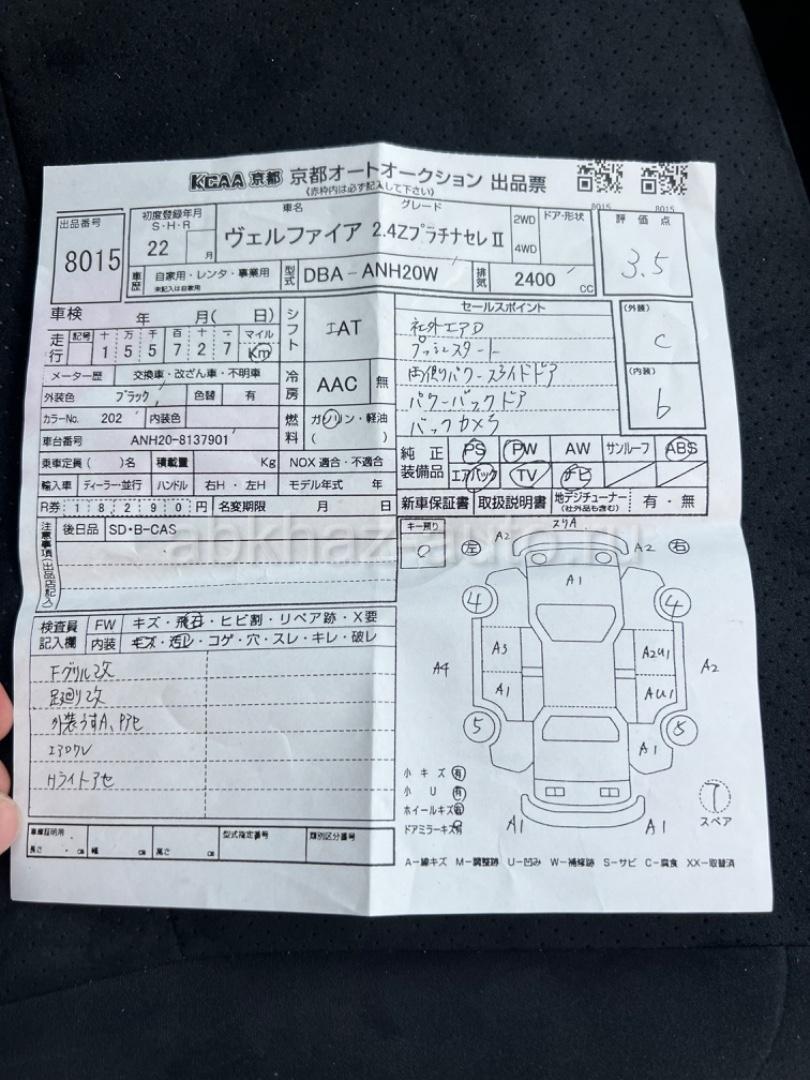 KCAA 京都 京都オートオークション 出品票
《赤枠内は必ず記入して下さい》
8015 8015
出品番号 8015
初度登録年月 S・H・R 22 月
車名 グレード
ヴェルファイア 2.4ZプラチナセレⅡ
2WD 4WD ドア・形状
評価点 3.5
車歴 自家用・レンタ・事業用 未記入は自家用
型式 DBA-ANH20W
排気 2400 cc
車検 年 月( 日)
走行 記号 十 万 千 百 十 一 マイル
1 5 5 7 2 7 Km
シフト IAT
メーター歴 交換車・改ざん車・不明車
外装色 ブラック 色替 有
冷房 AAC 無
カラーNo. 202 内装色
燃料 ガソリン・軽油 ( )
車台番号 ANH20-8137901
乗車定員( )名 積載量 Kg NOX 適合・不適合
輸入車 ディーラー・並行 ハンドル 右H・左H モデル年式 年
R券 18290円 名変期限 月 日
セールスポイント
社外エアロ
プッシュスタート
両側パワースライドドア
パワーバックドア
バックカメラ
(外装) C
(内装) b
純正装備品 PS PW AW サンルーフ ABS
エアバック TV ナビ
新車保証書 取扱説明書 地デジチューナー (社外品も含む) 有・無
注意事項(出品店記入)
後日品 SD・B-CAS
検査員記入欄
FW キズ・飛石・ヒビ割・リペア跡・X要
内装 キズ・汚レ・コゲ・穴・スレ・キレ・破レ
Fグリル改
足廻り改
外装うすA、Pアセ
エアロワレ
Hライトアセ
車庫証明用 長さ cm 幅 cm 高さ cm
型式指定番号 類別区分番号
キー預り
スリA
左 A2 A2 右
A1
4 4
A3 A2U1
A4 A2
A1 AU1
5 5
A1
小キズ 有
小U 有
ホイールキズ 有
ドアミラーキズ 有
A1 A1
スペア
A-線キズ M-調整跡 U-凹み W-補修跡 S-サビ C-腐食 XX-取替済
abkhaz-auto.ru